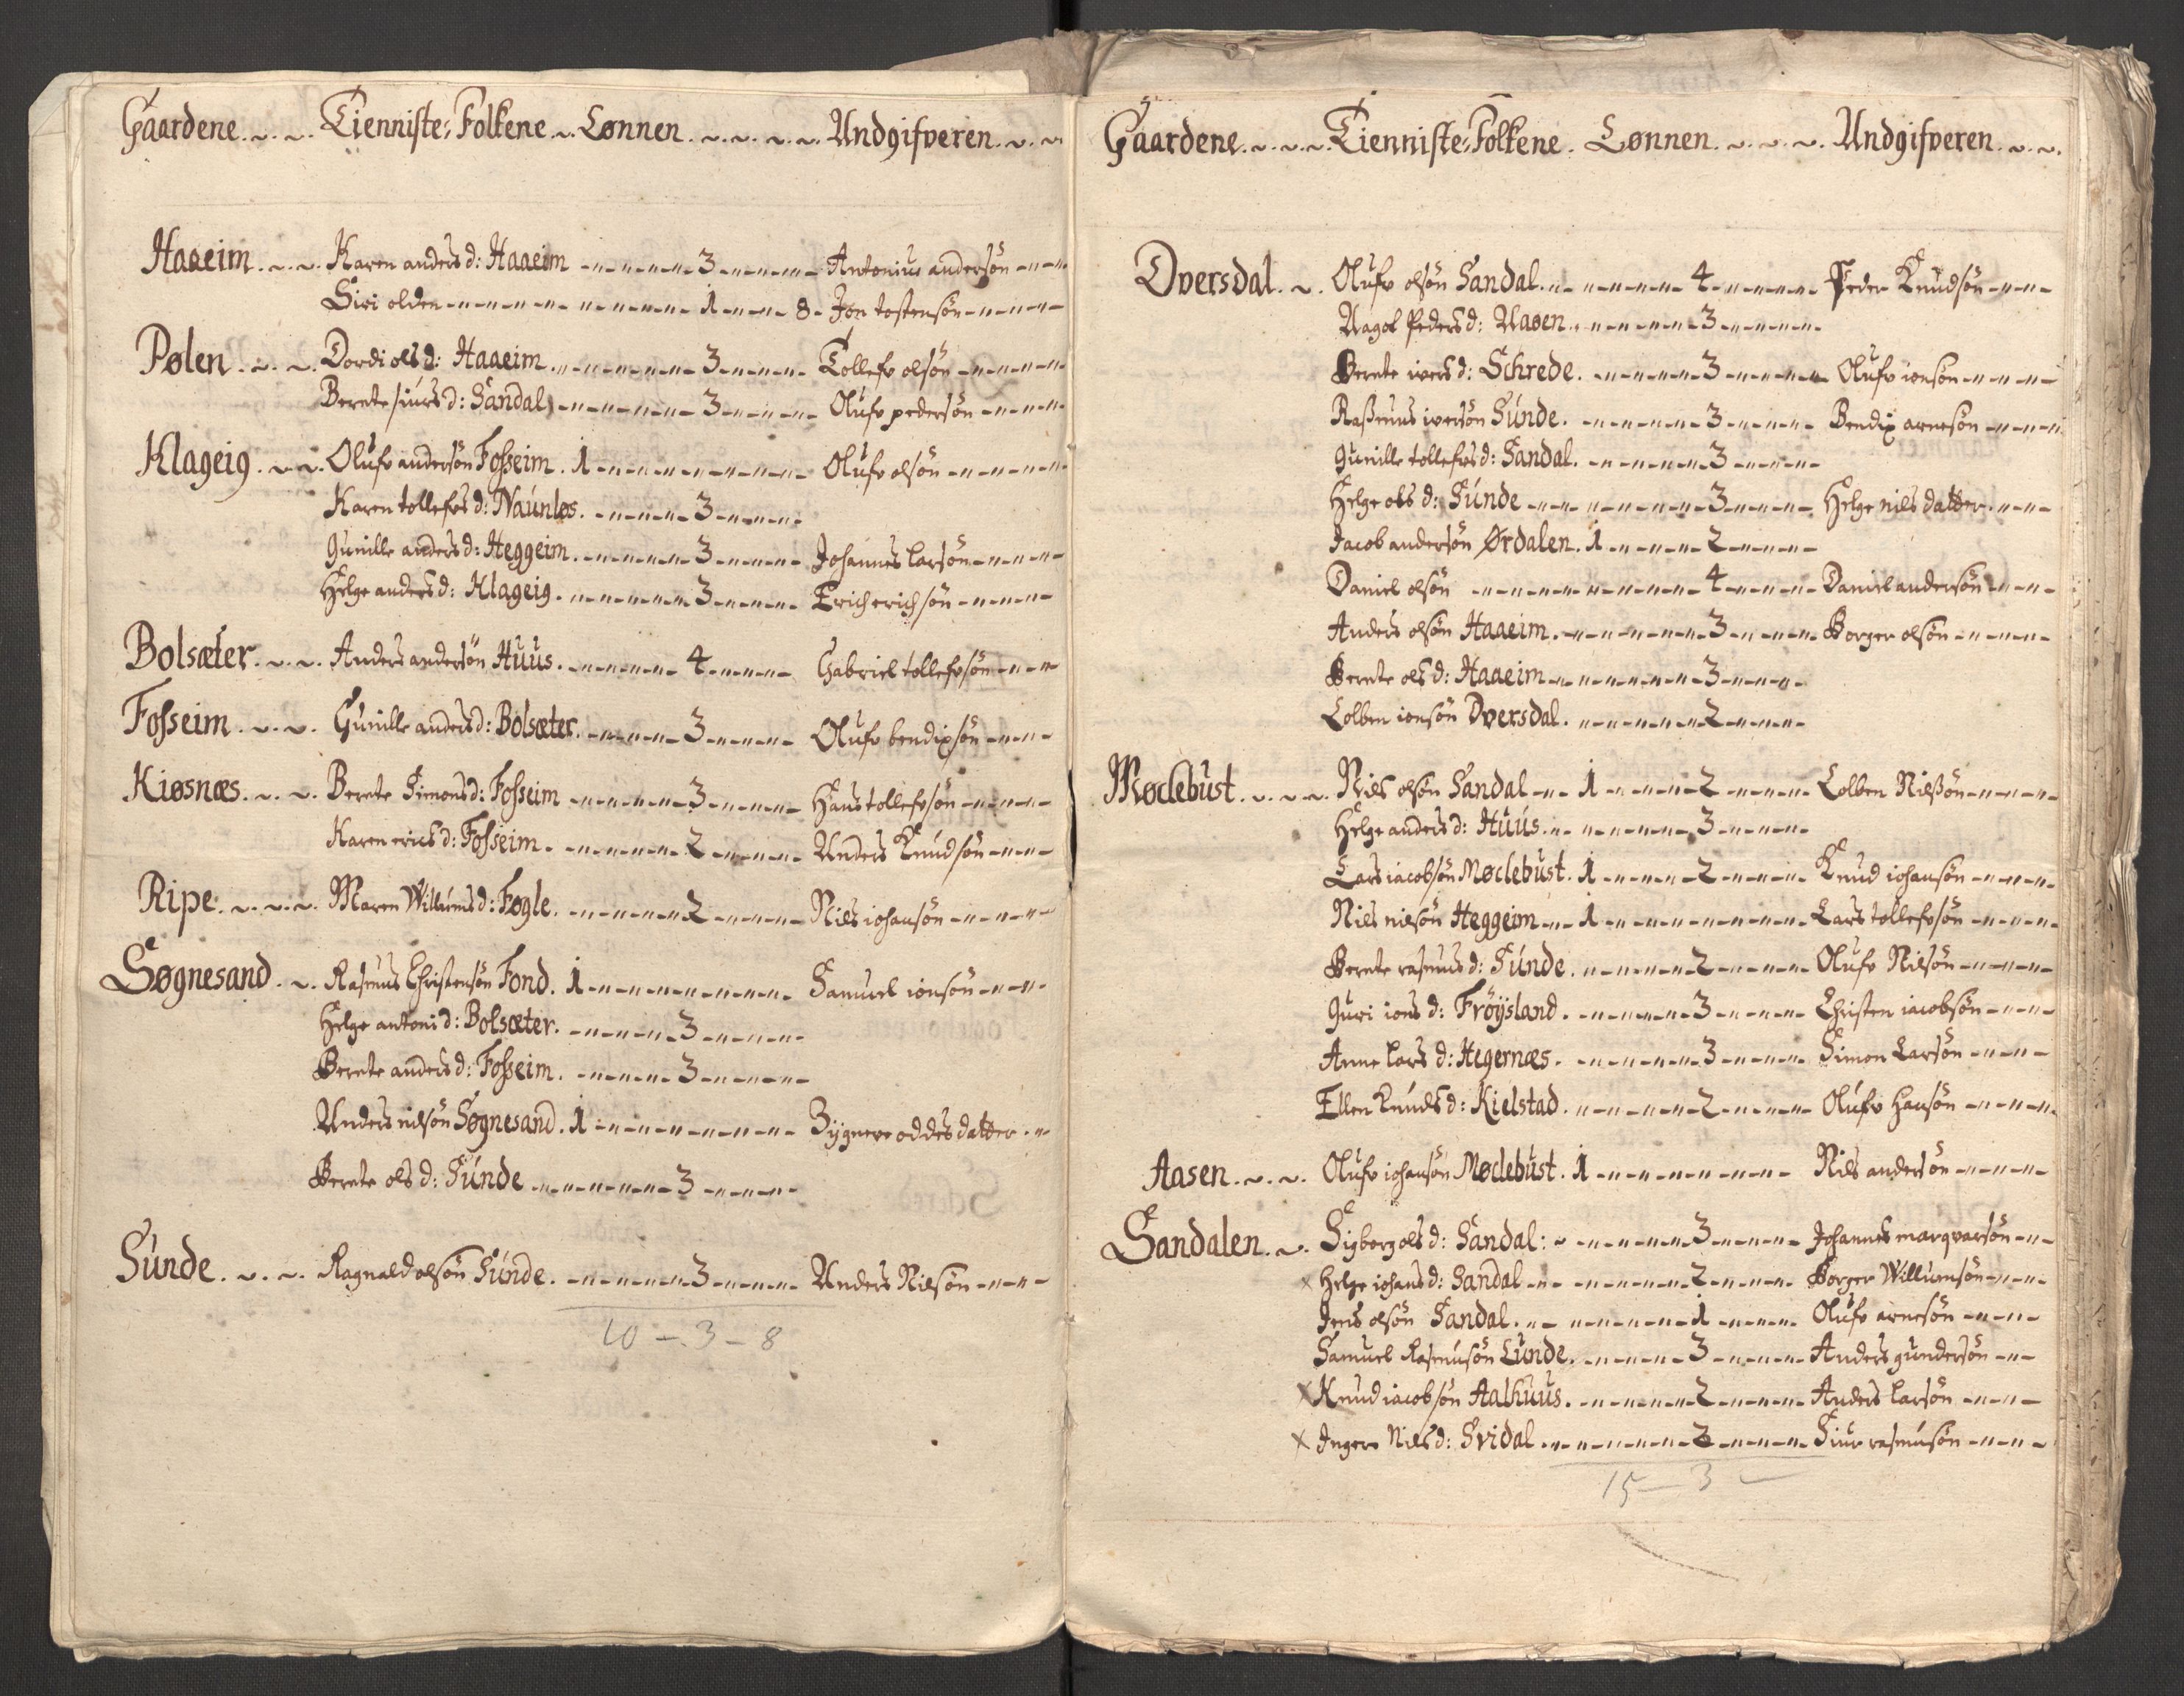 Gaardene. Tienniste-Folkene. Lønnen. Undgifveren.
Haaeim. Karen anders d: Haaeim 3 Antonius andersøn
Siri olden 1 8 Jon tostensøn
Pølen. Dordi ols d: Haaeim. 3 Tollefv olsøn
Berete siurs d: Sandal 3 Olufv pedersøn
Klageig. Olufv andersøn Fosseim. 1 Olufv olsøn
Karen tollefvs d: Naunløs. 3
Gunille anders d: Heggeim. 3 Johannes larsøn
Helge anders d: Klageig. 3 Erich erichsøn
Bolsæter. Anders andersøn Huus. 4 Gabriel tollefvsøn
Fosseim. Gunille anders d: Bolsæter. 3 Olufv bendixsøn
Kiøsnæs. Berete Simons d: Fosseim 3 Hans tollefvsøn
Karen erics d: Fosseim. 2 Anders Knudsøn
Ripe. Maren Willums d: Fogle. 2 Niels iohansøn
Søgnesand. Rasmus Christensøn Fond. 1 Samuel ionsøn
Helge antoni d: Bolsæter. 3
Berete anders d: Fosseim. 3
Anders nilsøn Søgnesand. 1 Zygnere oddes datter.
Berete ols d: Sunde 3
Sunde. Ragnald olsøn Sunde. 3 Anders Nilsøn
10 - 3 - 8
Gaardene. Tienniste-Folkene. Lønnen. Undgifveren.
Dversdal. Olufv olsøn Sandal. 4 Peder Knudsøn
Aagot Peders d: Aasen. 3
Berete ivers d: Schrede. 3 Olufv ionsøn
Rasmus iversøn Sunde. 3 Bendix arnesøn
Gunille tollefvs d: Sandal. 3
Helge ols d: Sunde 3 Helge nils datter.
Jacob andersøn Ørdalen. 1 2
Daniel olsøn 4 Daniel andersøn
Anders olsøn Haaeim. 3 Borger olsøn
Berete ols d: Haaeim 3
Colben ionsøn Dversdal. 2
Møclebust. Niels olsøn Sandal 1 2 Colben Nilssøn
Helge anders d: Huus. 3
Lars iacobsøn Møclebust. 1 2 Knud iohansøn
Niels nilsøn Heggeim 1 Lars tollefvsøn
Berete rasmus d: Sunde. 2 Olufv Nilsøn
Guri ions d: Frøysland. 3 Christen iacobsøn
Anne Lars d: Hegernæs. 3 Simon Larsøn
Ellen Knuds d: Kielstad. 2 Olufv Hansøn
Aasen. Olufv iohansøn Møclebust. 1 Niels andersøn
Sandalen. Sigborg ols d: Sandal: 3 Johannes marqvarsøn
x Helge iohans d: Sandal 2 Borger Willumsøn
Jens olsøn Sandal. 1 Olufv arnesøn
Samuel Rasmusøn Lunde. 3 Anders gundersøn
x Knud iacobsøn Aalhuus. 2 Anders larsøn
x Inger Niels d: Svidal. 2 Siur rasmusøn
15 - 3 -